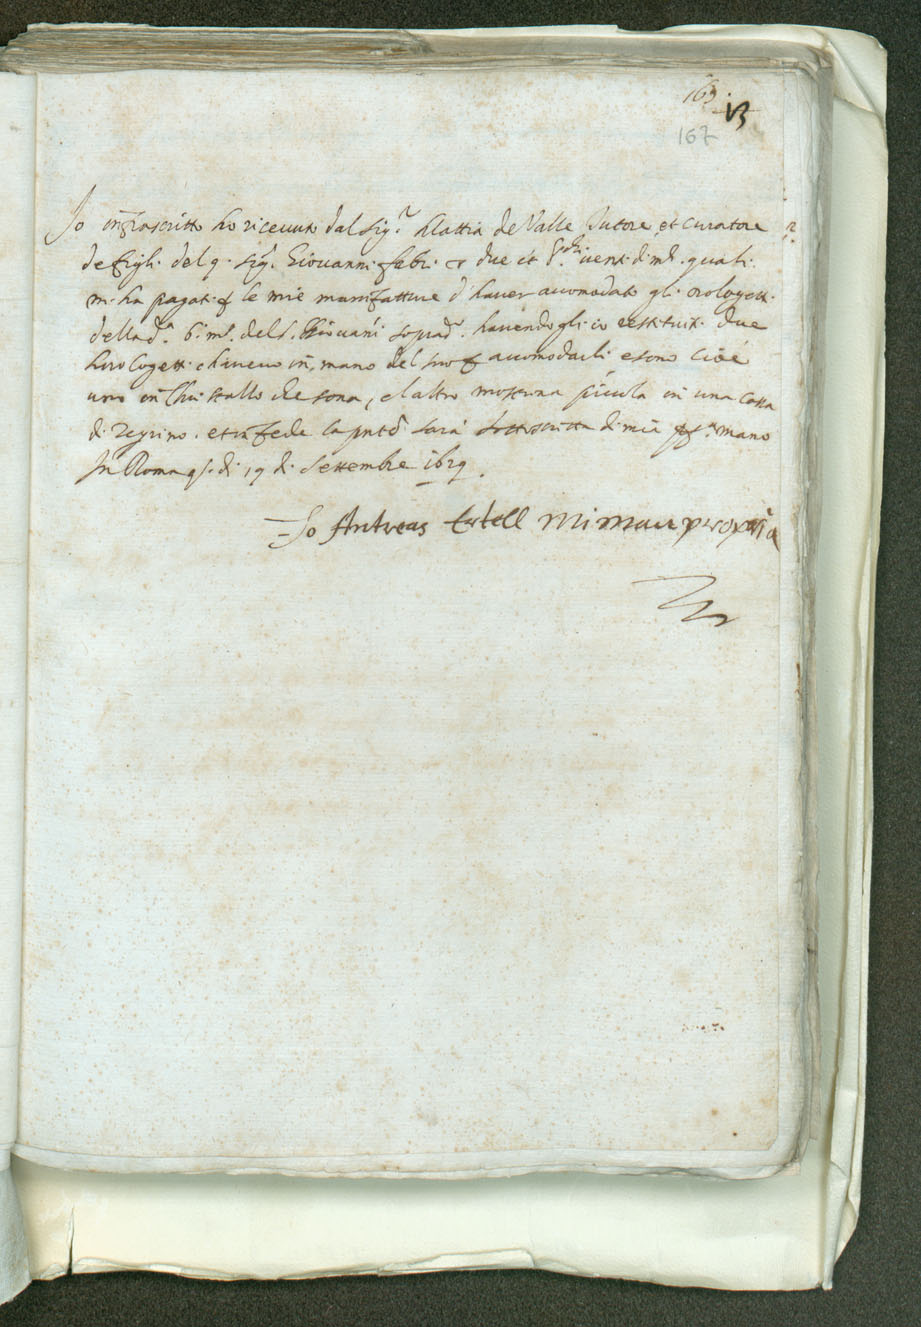 169.
V3
167
Io infrascritto ho ricevuto dal Sig.r Mattia de Valle Tutore et Curatore
de figli del q. Sig.r Giovanni fabri due et venti di m.ta quali
m. ha pagati p le mie manifatture d'haver accomodato gli orologetti
della d.a b. m. del S. Giovanni soprad. havendogli io restituiti due
horologetti chavevo in mano del suo p accomodarli e sono cioè
uno in Christallo che sona, el altro mostrina picciola in una cassa
di zegrino. et in fede la pnte sarà sottoscritta di mia pp.a mano
In Roma q.o di 19 di Settembre 1629.
Io Andreas Ertell Mi manu propria